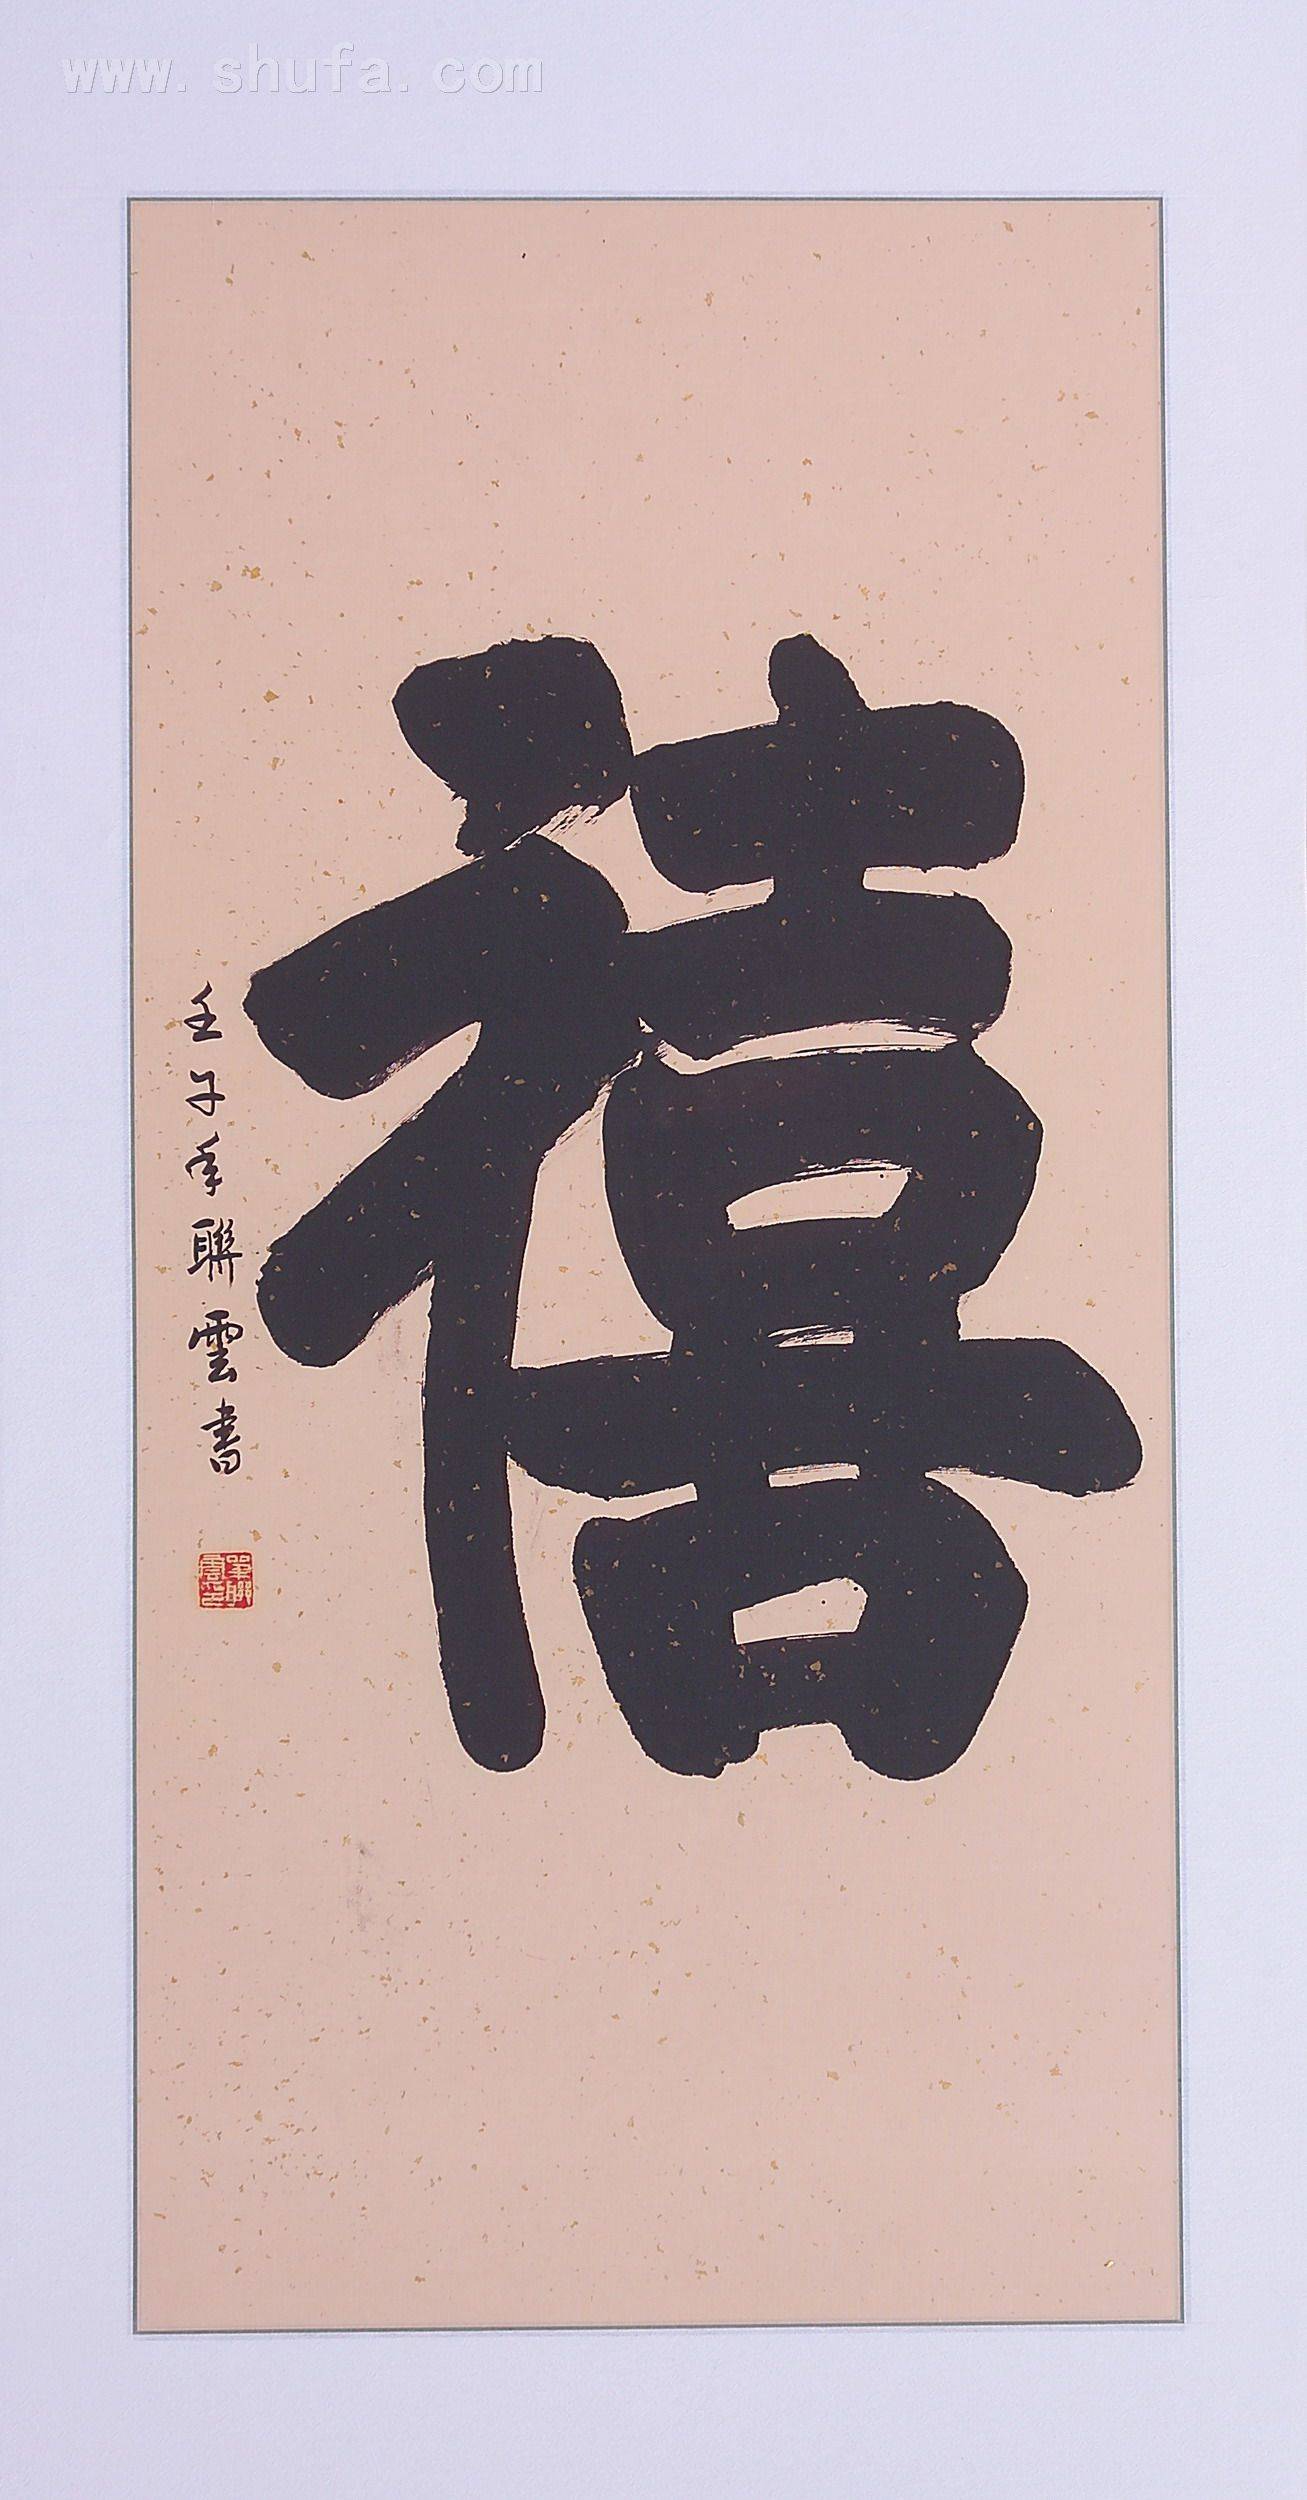 www.shufa.com
禧
壬子年聯雲書